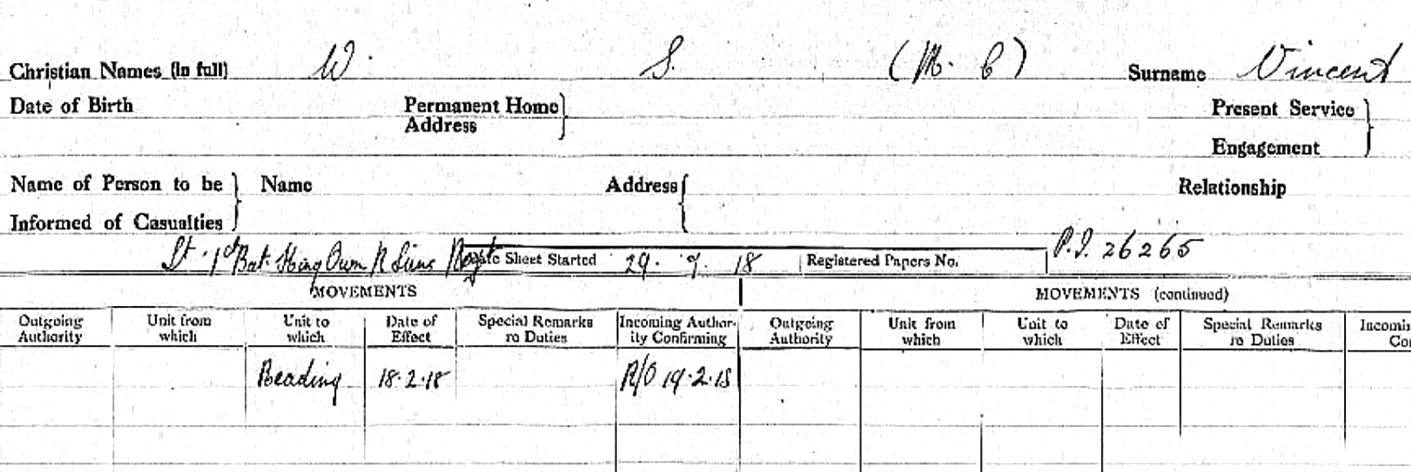 Christian Names (in full) W. S. (M. C) Surname Vincent
Date of Birth Permanent Home Address Present Service
Engagement
Name of Person to be Informed of Casualties Name Address Relationship
Lt. 1st Bat. King Own R Lanc Regt Date Sheet Started 29. 7. 18 Registered Papers No. P.I. 26265
MOVEMENTS MOVEMENTS (continued)
Outgoing Authority Unit from which Unit to which Date of Effect Special Remarks re Duties Incoming Author-ity Confirming Outgoing Authority Unit from which Unit to which Date of Effect Special Remarks re Duties Incomin
Reading 18.2.18 R/O 19.2.18